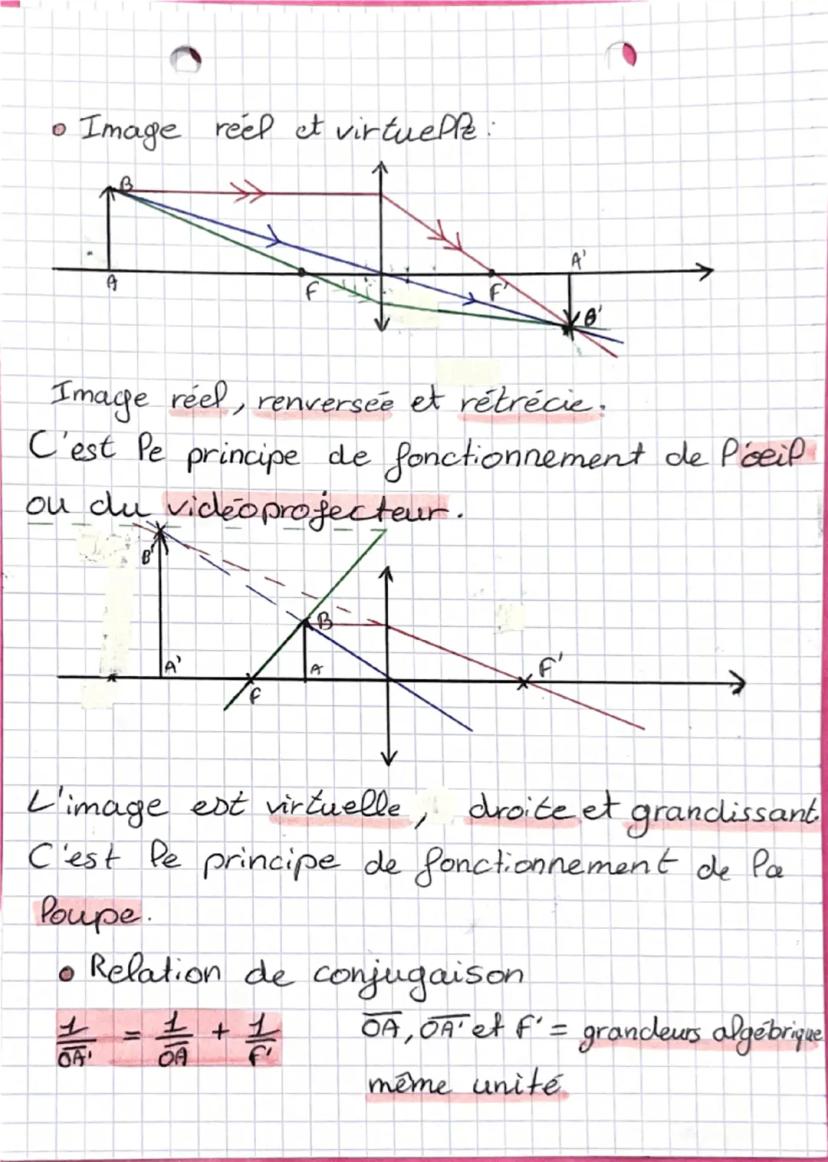 • Image réel et virtuelle :
B
A'
A
F
F'
B'
Image réel, renversée et rétrécie.
C'est le principe de fonctionnement de l'oeil
ou du vidéoprojecteur.
B'
B
A'
A
F'
F
L'image est virtuelle, droite et grandissant.
C'est le principe de fonctionnement de la
loupe.
• Relation de conjugaison
1/OA' = 1/OA + 1/F' OA, OA' et F' = grandeurs algébrique
même unité